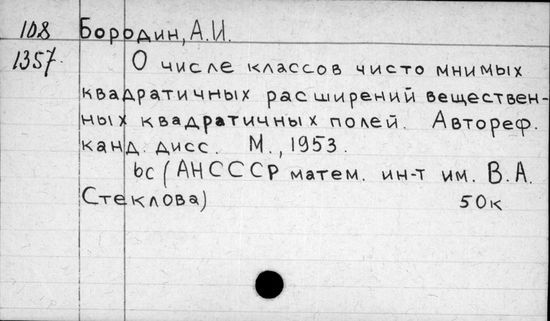 108 Бородин, А.И.
1357. О числе классов чисто мнимых
квадратичных расширений веществен-
ных квадратичных полей. Автореф.
канд. дисс. М., 1953.
bc (АНСССР матем. ин-т им. В.А.
Стеклова) 50к